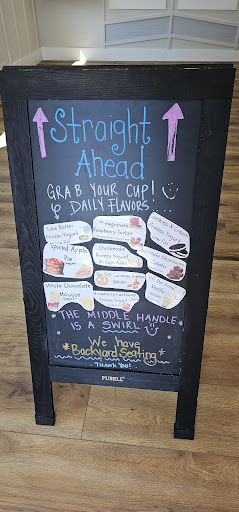 Straight
Ahead
GRAB YOUR CUP!
DAILY FLAVORS
Cake Batter
Frozen Yogurt
Pomegranate
Raspberry Sorbet
Cookies & Cream
Frozen Yogurt
Spiced Apple
Pie
Cheesecake
Frozen Yogurt
No Sugar Added
White Chocolate
Mousse
THE MIDDLE HANDLE
IS A SWIRL
We have
Backyard Seating
- THANK YOU!
PUBBLE